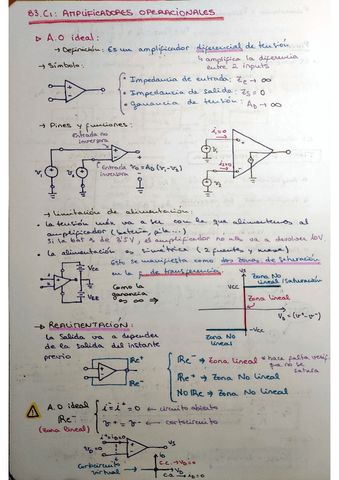 B3.C1: AMPLIFICADORES OPERACIONALES
A.O ideal:
→ Definición: Es un amplificador diferencial de tensión
↳ amplifica la diferencia
entre 2 inputs
→ Símbolo:
• Impedancia de entrada: Ze → ∞
• Impedancia de salida: Zs = 0
• Ganancia de tensión: AD → ∞
→ Pines y funciones:
Entrada no
inversora
Entrada
inversora
V0 = AD (V1 - V2)
i=0
i=0
→ Limitación de alimentación:
• la tensión max va a ser con la que alimentemos al
amplificador (batería, pila...)
Si la bat es de 3'5V, el amplificador no va a devolver 10V
• la alimentación es simétrica (2 fuentes y masa)
Esto se manifiesta como dos zonas de saturación
en la f. de transferencia
VCC
VEE
Como la
ganancia
es ∞ →
Zona No
lineal /Saturación
VCC
Zona lineal
VD = (V+ - V-)
Zona No
lineal
-VCC
→ REALIMENTACIÓN:
La Salida va a depender
de la Salida del instante
previo
Re+
Re-
Re- → Zona lineal
* hace falta verif
que no se
satura
Re+ → Zona No lineal
NO Re → Zona No lineal
A.O ideal
Re-
(Zona lineal)
i- = i+ = 0 ← circuito abierto
V+ = V- ← cortocircuito
VD = 0
VS
Cortocircuito
virtual
iD
C.C. → VD
C.A → iD = 0